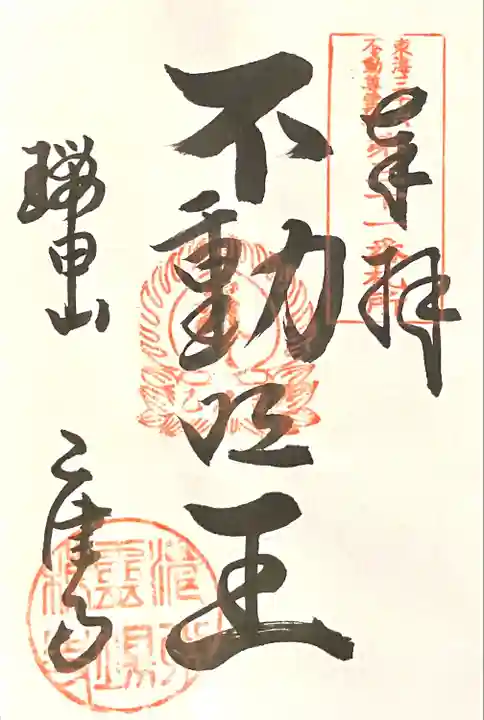 奉拝
東海三十六
不動尊霊場
第三十一番札所
不動明王
瑞甲山
乙津寺